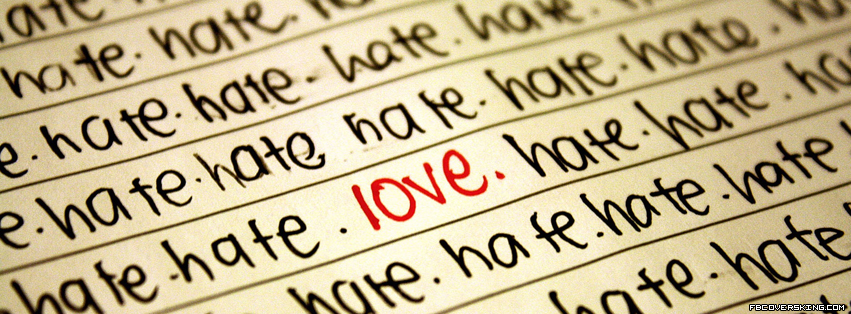 hate.
hate. hate. hate
e. hate. hate. hate. hate.
e. hate. hate hate. hate. hate. ha
hate. hate. love. hate. hate. ha
hate. hate. hate. hate
hate. hate
FBCOVERSKING.COM